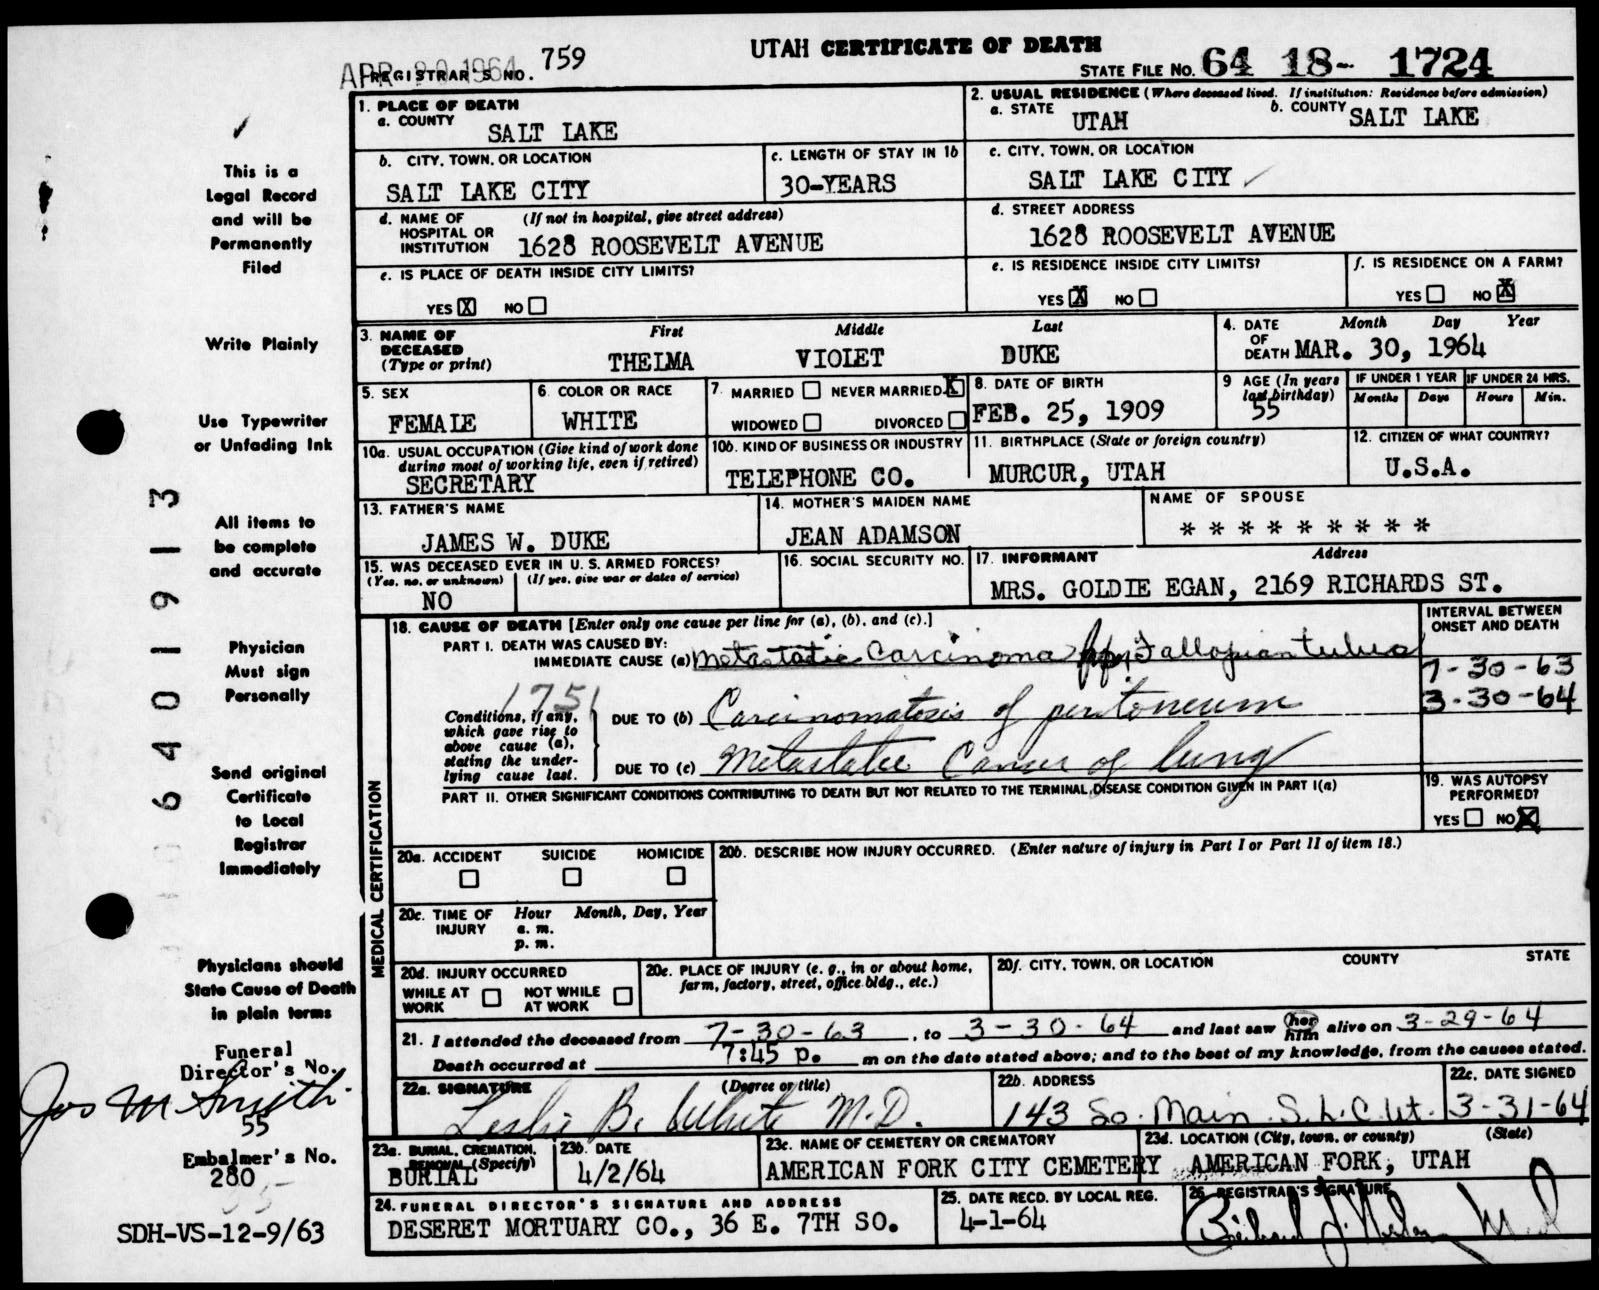 UTAH CERTIFICATE OF DEATH
APR 20 1964
REGISTRAR'S NO. 759
STATE FILE NO. 64 18- 1724
1. PLACE OF DEATH
a. COUNTY
SALT LAKE
2. USUAL RESIDENCE (Where deceased lived. If institution: Residence before admission)
a. STATE UTAH b. COUNTY SALT LAKE
b. CITY, TOWN, OR LOCATION
SALT LAKE CITY
c. LENGTH OF STAY IN 1b
30-YEARS
c. CITY, TOWN, OR LOCATION
SALT LAKE CITY
d. NAME OF HOSPITAL OR INSTITUTION (If not in hospital, give street address)
1628 ROOSEVELT AVENUE
d. STREET ADDRESS
1628 ROOSEVELT AVENUE
e. IS PLACE OF DEATH INSIDE CITY LIMITS?
YES X NO
e. IS RESIDENCE INSIDE CITY LIMITS?
YES X NO
f. IS RESIDENCE ON A FARM?
YES NO X
3. NAME OF DECEASED (Type or print)
First Middle Last
THELMA VIOLET DUKE
4. DATE OF DEATH Month Day Year
MAR. 30, 1964
5. SEX
FEMALE
6. COLOR OR RACE
WHITE
7. MARRIED NEVER MARRIED X
WIDOWED DIVORCED
8. DATE OF BIRTH
FEB. 25, 1909
9 AGE (In years last birthday)
55
IF UNDER 1 YEAR IF UNDER 24 HRS.
Months Days Hours Min.
10a. USUAL OCCUPATION (Give kind of work done during most of working life, even if retired)
SECRETARY
10b. KIND OF BUSINESS OR INDUSTRY
TELEPHONE CO.
11. BIRTHPLACE (State or foreign country)
MURCUR, UTAH
12. CITIZEN OF WHAT COUNTRY?
U.S.A.
13. FATHER'S NAME
JAMES W. DUKE
14. MOTHER'S MAIDEN NAME
JEAN ADAMSON
NAME OF SPOUSE
* * * * * * * * *
15. WAS DECEASED EVER IN U. S. ARMED FORCES?
(Yes, no, or unknown) (If yes, give war or dates of service)
NO
16. SOCIAL SECURITY NO.
17. INFORMANT Address
MRS. GOLDIE EGAN, 2169 RICHARDS ST.
MEDICAL CERTIFICATION
18. CAUSE OF DEATH [Enter only one cause per line for (a), (b), and (c).]
INTERVAL BETWEEN ONSET AND DEATH
PART I. DEATH WAS CAUSED BY:
IMMEDIATE CAUSE (a) Metastatic Carcinoma Fallopian tubes
7-30-63
3-30-64
1751
Conditions, if any, which gave rise to above cause (a), stating the underlying cause last.
DUE TO (b) Carcinomatosis of peritoneum
DUE TO (c) Metastatic Cancer of lung
PART II. OTHER SIGNIFICANT CONDITIONS CONTRIBUTING TO DEATH BUT NOT RELATED TO THE TERMINAL DISEASE CONDITION GIVEN IN PART I(a)
19. WAS AUTOPSY PERFORMED?
YES NO X
20a. ACCIDENT SUICIDE HOMICIDE
20b. DESCRIBE HOW INJURY OCCURRED. (Enter nature of injury in Part I or Part II of item 18.)
20c. TIME OF INJURY Hour Month, Day, Year
a. m.
p. m.
20d. INJURY OCCURRED
WHILE AT WORK NOT WHILE AT WORK
20e. PLACE OF INJURY (e. g., in or about home, farm, factory, street, office bldg., etc.)
20f. CITY, TOWN, OR LOCATION COUNTY STATE
21. I attended the deceased from 7-30-63, to 3-30-64 and last saw her him alive on 3-29-64
Death occurred at 7:45 p. m on the date stated above; and to the best of my knowledge, from the causes stated.
22a. SIGNATURE (Degree or title)
Leslie B. White M.D.
22b. ADDRESS
143 So. Main S.L.C. Ut.
22c. DATE SIGNED
3-31-64
23a. BURIAL, CREMATION, REMOVAL (Specify)
BURIAL
23b. DATE
4/2/64
23c. NAME OF CEMETERY OR CREMATORY
AMERICAN FORK CITY CEMETERY
23d. LOCATION (City, town, or county) (State)
AMERICAN FORK, UTAH
24. FUNERAL DIRECTOR'S SIGNATURE AND ADDRESS
DESERET MORTUARY CO., 36 E. 7TH SO.
25. DATE RECD. BY LOCAL REG.
4-1-64
26. REGISTRAR'S SIGNATURE
This is a
Legal Record
and will be
Permanently
Filed
Write Plainly
Use Typewriter
or Unfading Ink
All items to
be complete
and accurate
Physician
Must sign
Personally
Send original
Certificate
to Local
Registrar
Immediately
Physicians should
State Cause of Death
in plain terms
Funeral
Director's No.
Jos M Smith
55
Embalmer's No.
280
35
SDH-VS-12-9/63
6 4 0 1 9 1 3